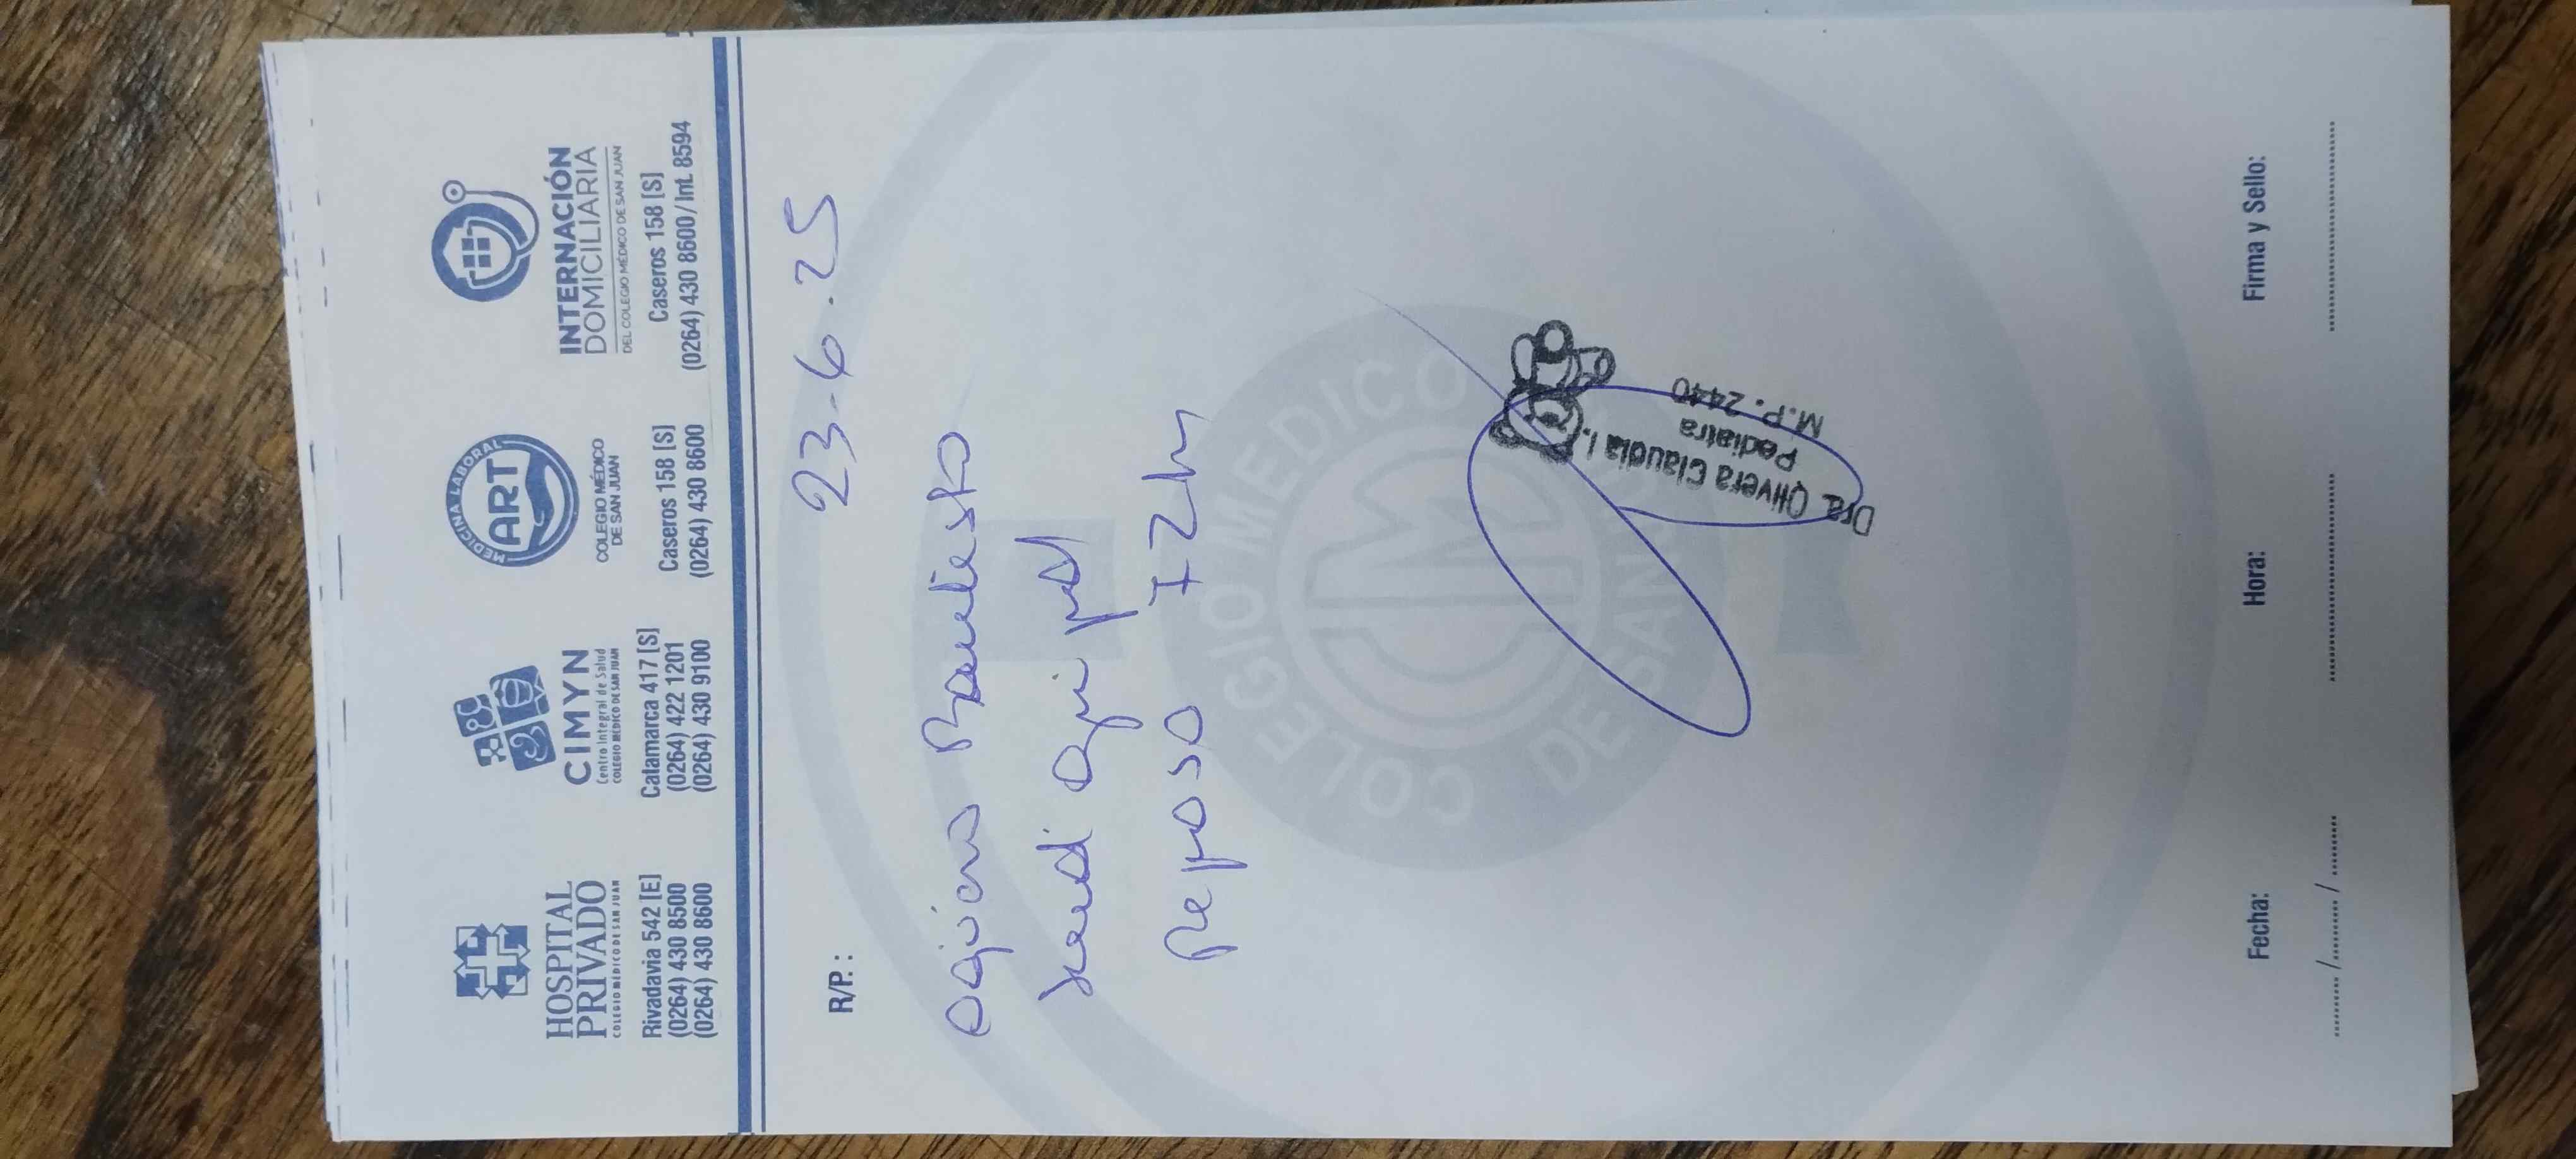 HOSPITAL
PRIVADO
COLEGIO MÉDICO DE SAN JUAN
Rivadavia 542 [E]
(0264) 430 8500
(0264) 430 8600
CIMYN
Centro Integral de Salud
COLEGIO MÉDICO DE SAN JUAN
Catamarca 417 [S]
(0264) 422 1201
(0264) 430 9100
MEDICINA LABORAL
ART
COLEGIO MÉDICO
DE SAN JUAN
Caseros 158 [S]
(0264) 430 8600
INTERNACIÓN
DOMICILIARIA
DEL COLEGIO MÉDICO DE SAN JUAN
Caseros 158 [S]
(0264) 430 8600/Int. 8594
23-6.25
R/P.:
Reposo 72h
COLEGIO MEDICO
DE SAN
Dra. Olivera Claudia I.
Pediatra
M.P. 2440
Fecha: Hora: Firma y Sello: